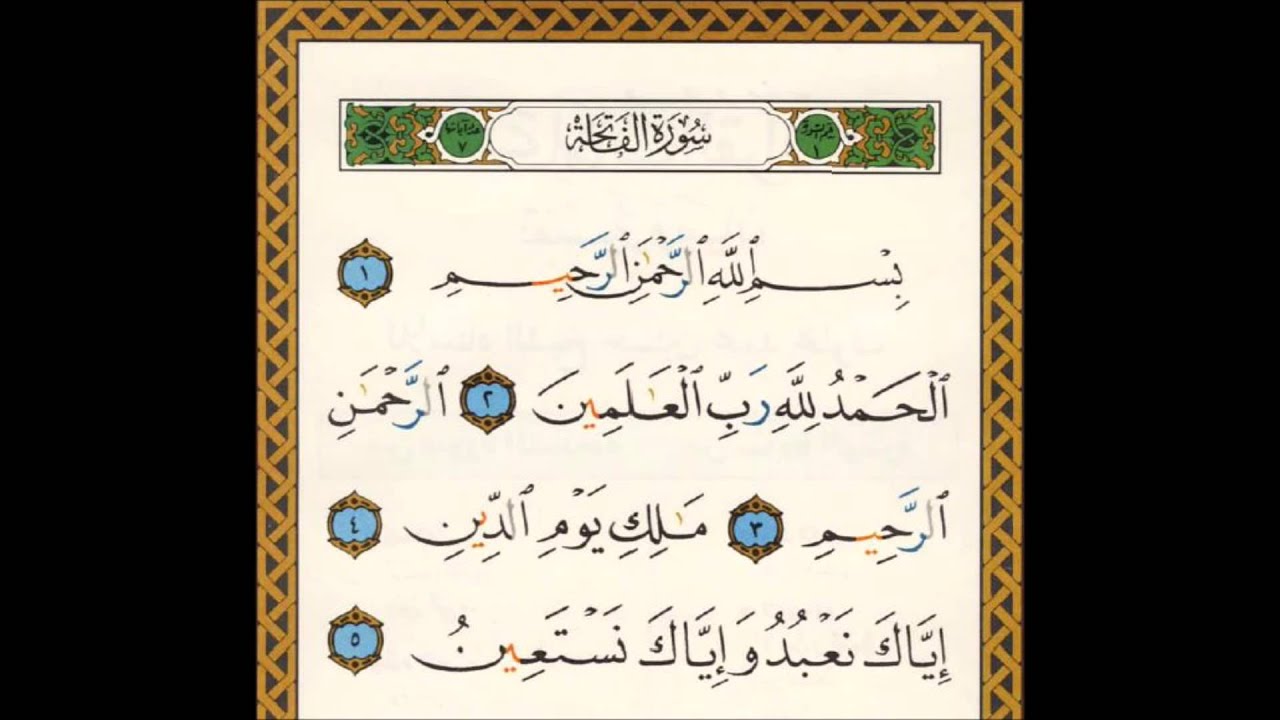 عدد آياتها ٧ سُورَةُ الفَاتِحَة ١
بِسْمِ ٱللَّهِ ٱلرَّحْمَٰنِ ٱلرَّحِيمِ ١
ٱلْحَمْدُ لِلَّهِ رَبِّ ٱلْعَٰلَمِينَ ٢ ٱلرَّحْمَٰنِ
ٱلرَّحِيمِ ٣ مَٰلِكِ يَوْمِ ٱلدِّينِ ٤
إِيَّاكَ نَعْبُدُ وَإِيَّاكَ نَسْتَعِينُ ٥